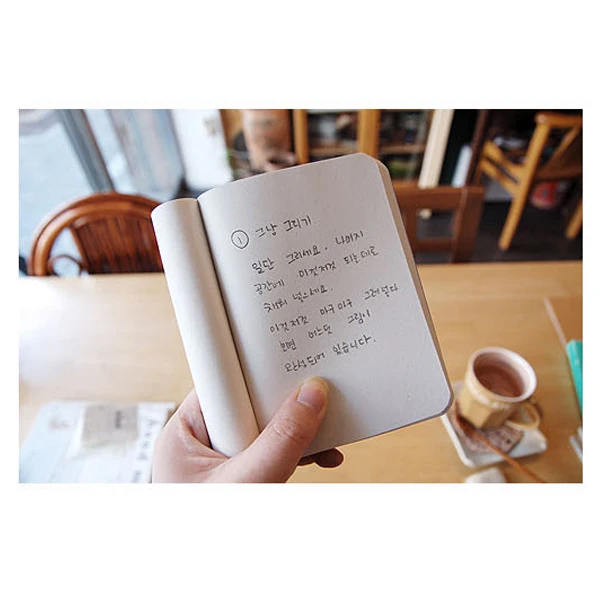 ① 그냥 그리기
일단 그리세요. 나머지
공간에 이것저것 되는대로
채워 넣으세요.
이것저것 마구마구 그려넣다
보면 어느덧 그림이
완성되어 있습니다.